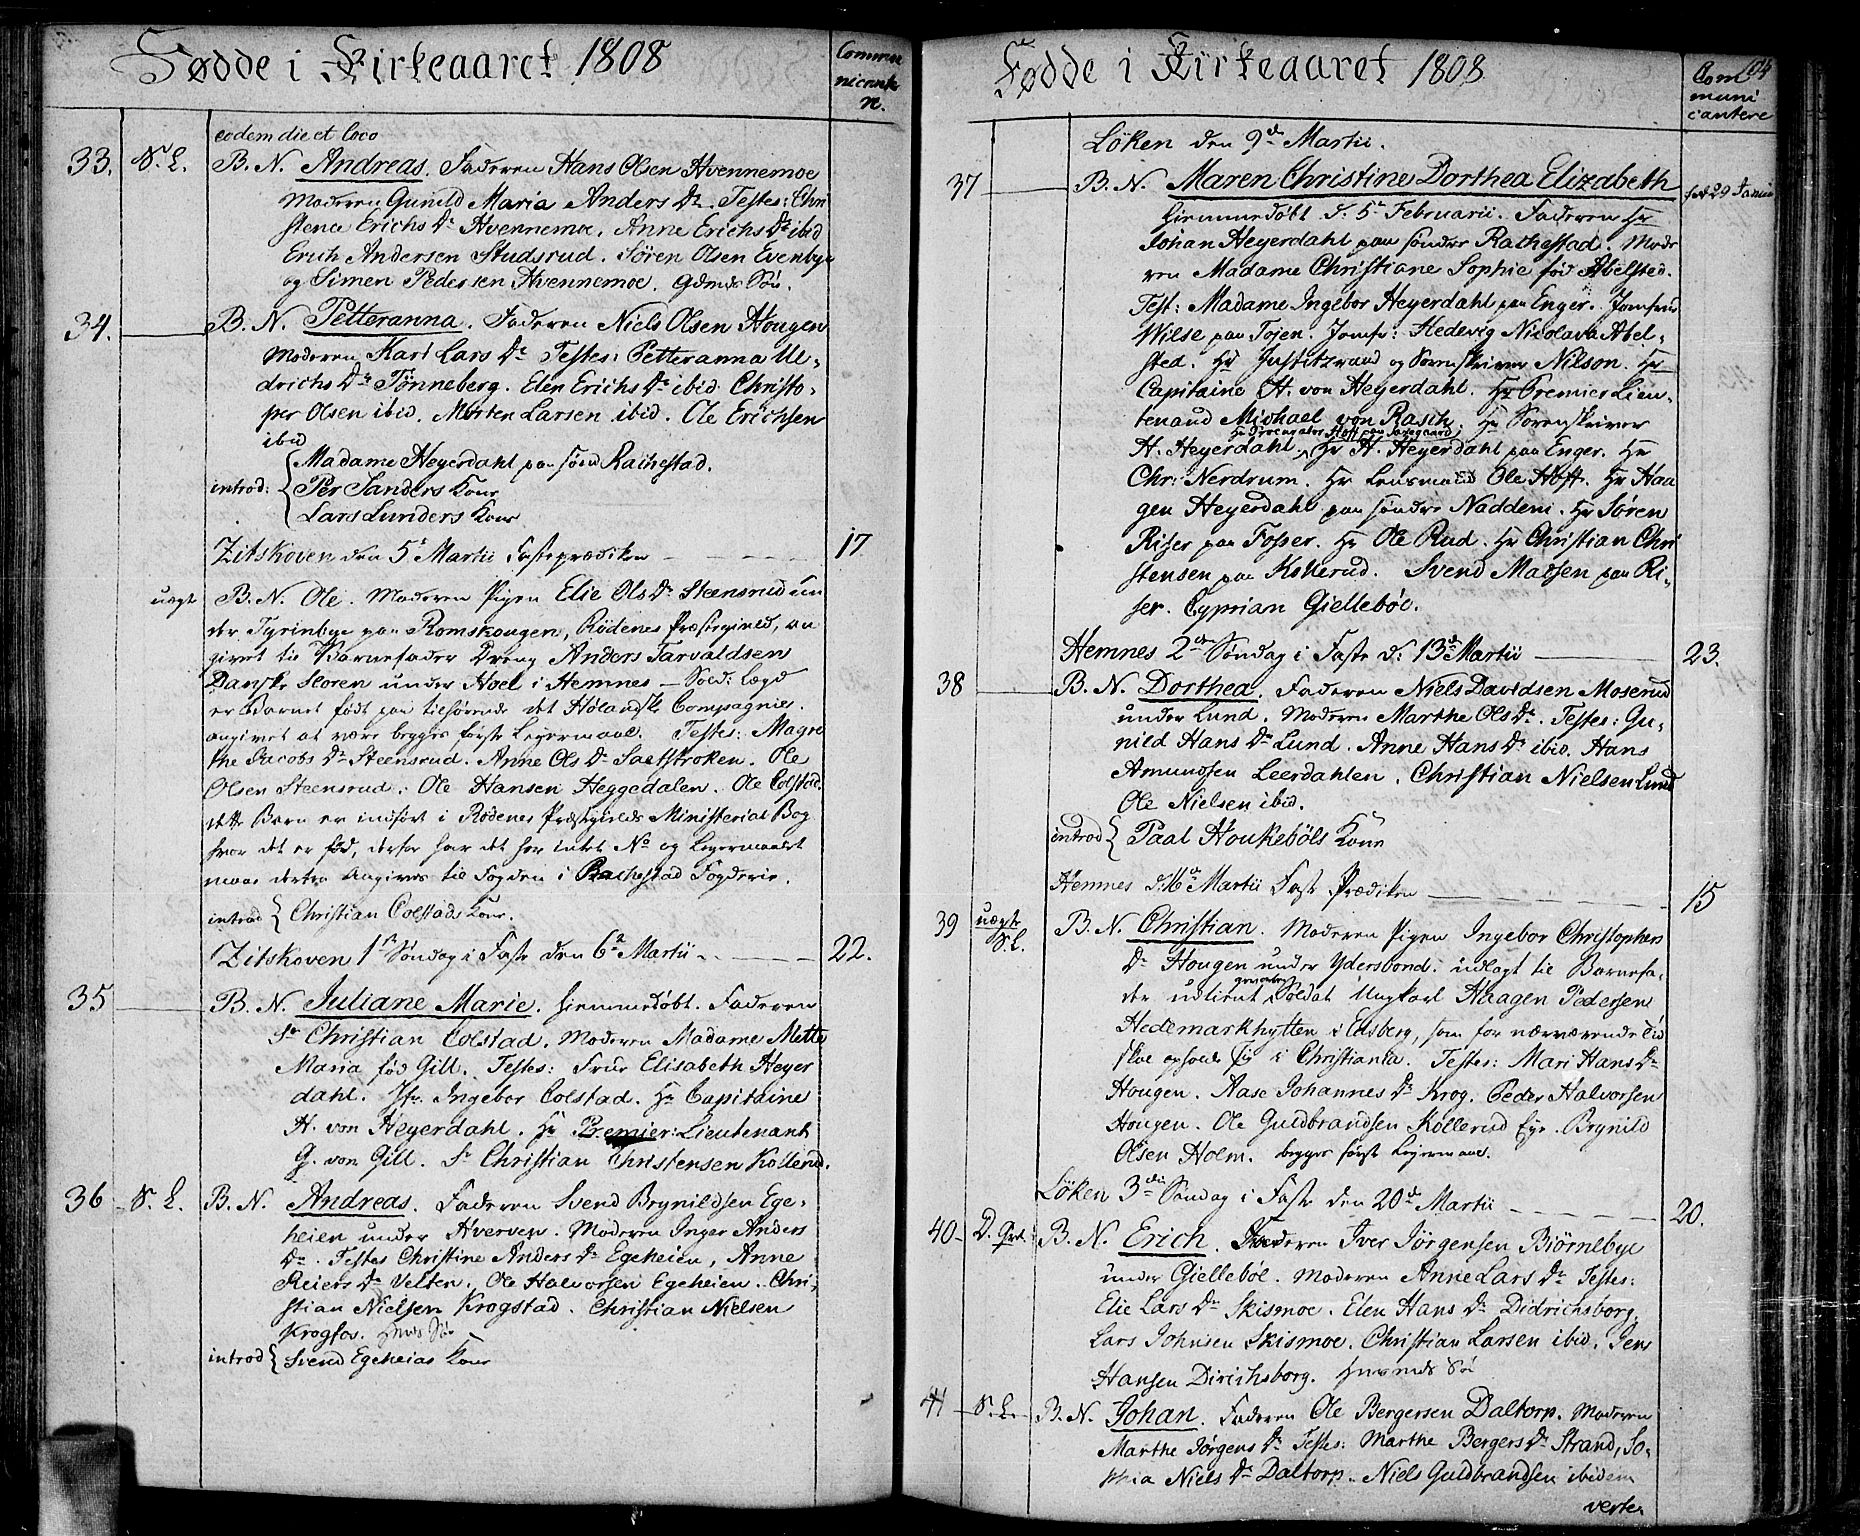 Fødde i Kirkeaaret 1808
Commu
nicante
r.
eodem die et loco
33. S. L. B. N. Andreas. Faderen Hans Olsen Hvennemoe
Moderen Gunild Maria Anders Dr. Testes: Chri
stena Erichs Dr Hvennemoe. Anne Erichs Dr ibid
Erich Andersen Studsrud. Sören Olsen Evenbye
og Simen Pedersen Hvennemoe. Gdmds Søn.
34. B. N. Petteranna. Faderen Niels Olsen Hougen
Moderen Kari Lars Dr Testes: Petteranna Ul-
drichs Dr Tønneberg. Elen Erichs Dr ibid. Christo-
per Olsen ibid. Morten Larsen ibid. Ole Erichsen
ibid
introd: { Madame Heyerdahl paa sønd Rachestad.
Per Sanders Kone
Lars Lunders Kone
Zitskoven den 5te Martii Fasteprædiken 17
uægte B. N. Ole. Moderen Pigen Elie Ols Dr Steensrud un
der Tyrinbye paa Romskougen, Rödenes Præstegield, an
givet til Barnefader Dreng Anders Tarvaldsen
Danske Storen under Hoel i Hemnes – Sold: Lægd
er Barnet født paa tilhørende det Hølandske Compagnie.
angivet at være begges første Leyermaal. Testes: Magre
the Jacobs Dr Steensrud. Anne Ols Dr Saetstroken. Ole
Olsen Steensrud. Ole Hansen Heggedalen. Ole Colstad.
dette Barn er indført i Rödenes Præstegields Ministerial Bog
hvor det er fød, derfor har det her intet No og Leyermaalet
maae derfra angives til Fogden i Rachestad Fogderie.
introd { Christian Colstads Kone.
Zitskoven 1ste Søndag i Faste den 6te Martii 22.
35 B. N. Juliane Marie. hiemmedøbt. Faderen
Sr Christian Colstad. Moderen Madame Mette
Maria fød Gill. Testes: Frue Elisabeth Heyer
dahl. Jfr. Ingebor Colstad. Hr Capitaine
H. von Heyerdahl. Hr Premier: Lieutenant
G. von Gill. Sr Christian Christensen Kollerud.
36 S. L. B. N. Andreas. Faderen Svend Brynildsen Ege-
heien under Hverven. Moderen Inger Anders
Dr. Testes Christine Anders Dr Egeheien, Anne
Reiers Dr Velten. Ole Halvorsen Egeheien. Chri-
stian Nielsen Krogstad. Christian Nielsen
Krogfos. Hmds Søn
introd { Svend Egeheias Kone
Fødde i Kirkeaaret 1808
Com
muni
cantere
Löken den 9de Martii.
37 B. N. Maren Christine Dorthea Elizabeth fød 29 Januar
hiemmedøbt d. 5te Februarii. Faderen Hr
Johan Heyerdahl paa søndre Rachestad. Mode
ren Madame Christiane Sophie fød Abelsted.
Test: Madame Ingebor Heyerdahl paa Enger. Jomfrue
Wilse paa Tojen. Jomfr: Hedevig Nicolava Abel-
sted. Hr Justitzraad og Sorenskriver Nilson. Hr
Capitaine H. von Heyerdahl. Hr Premier Lieu-
tenand Michael von Rasch. Hr Sorenskriver
H. Heyerdahl. Hr H. Heyerdahl paa Enger. Hr
Chr: Nerdrum. Hr Lensmand Ole Hofft. Hr Haa
gen Heyerdahl paa søndre Naddeni. Hr Søren
Riser paa Fosser. Hr Ole Rud. Hr Christian Chri
stensen paa Kollerud. Svend Madsen paa Ri-
ser. Cyprian Giellebøe.
Hemnes 2den Søndag i Faste d: 13de Martii 23.
38 B. N. Dorthea. Faderen Niels Davidsen Moserud
under Lund. Moderen Marthe Ols Dr. Testes: Gu-
nild Hans Dr Lund. Anne Hans Dr ibid. Hans
Amundsen Leerdahlen. Christian Nielsen Lund
Ole Nielsen ibid.
introd { Paal Houkebøls Kone
Hemnes d: 16de Martii Faste Prædiken 15
39 uægte S. L. B. N. Christian. Moderen Pigen Ingebor Christophers
Dr Hougen under Ydersbond. udlagt til Barnefa-
der udtient Soldat Ungkarl Haagen Pedersen
Hedemarkhytten i Edsberg, som for nærværende Tid
skal opholde sig i Christiania. Testes: Mari Hans Dr
Hougen. Aase Johannes Dr Krog. Peder Halvorsen
Hougen. Ole Guldbrandsen Kollerud Eye. Brynild
Olsen Holm. begges første Leyermaal.
Löken 3die Søndag i Faste den 20de Martii 20.
40 B. N. Erich. Faderen Iver Jörgensen Biörnebye
under Giellebøe. Moderen Anne Lars Dr Testes:
Elie Lars Dr Skismoe. Elen Hans Dr Didrichsborg.
Lars Johnsen Skismoe. Christian Larsen ibid. Jens
Hansen Dirichsborg. Huusmds Søn
41 S. L. B. N. Johan. Faderen Ole Bergersen Daltorp. Moderen
Marthe Jörgens Dr Testes: Marthe Bergers Dr Strand, So-
phia Niels Dr Daltorp. Niels Guldbrandsen ibidem
verte.